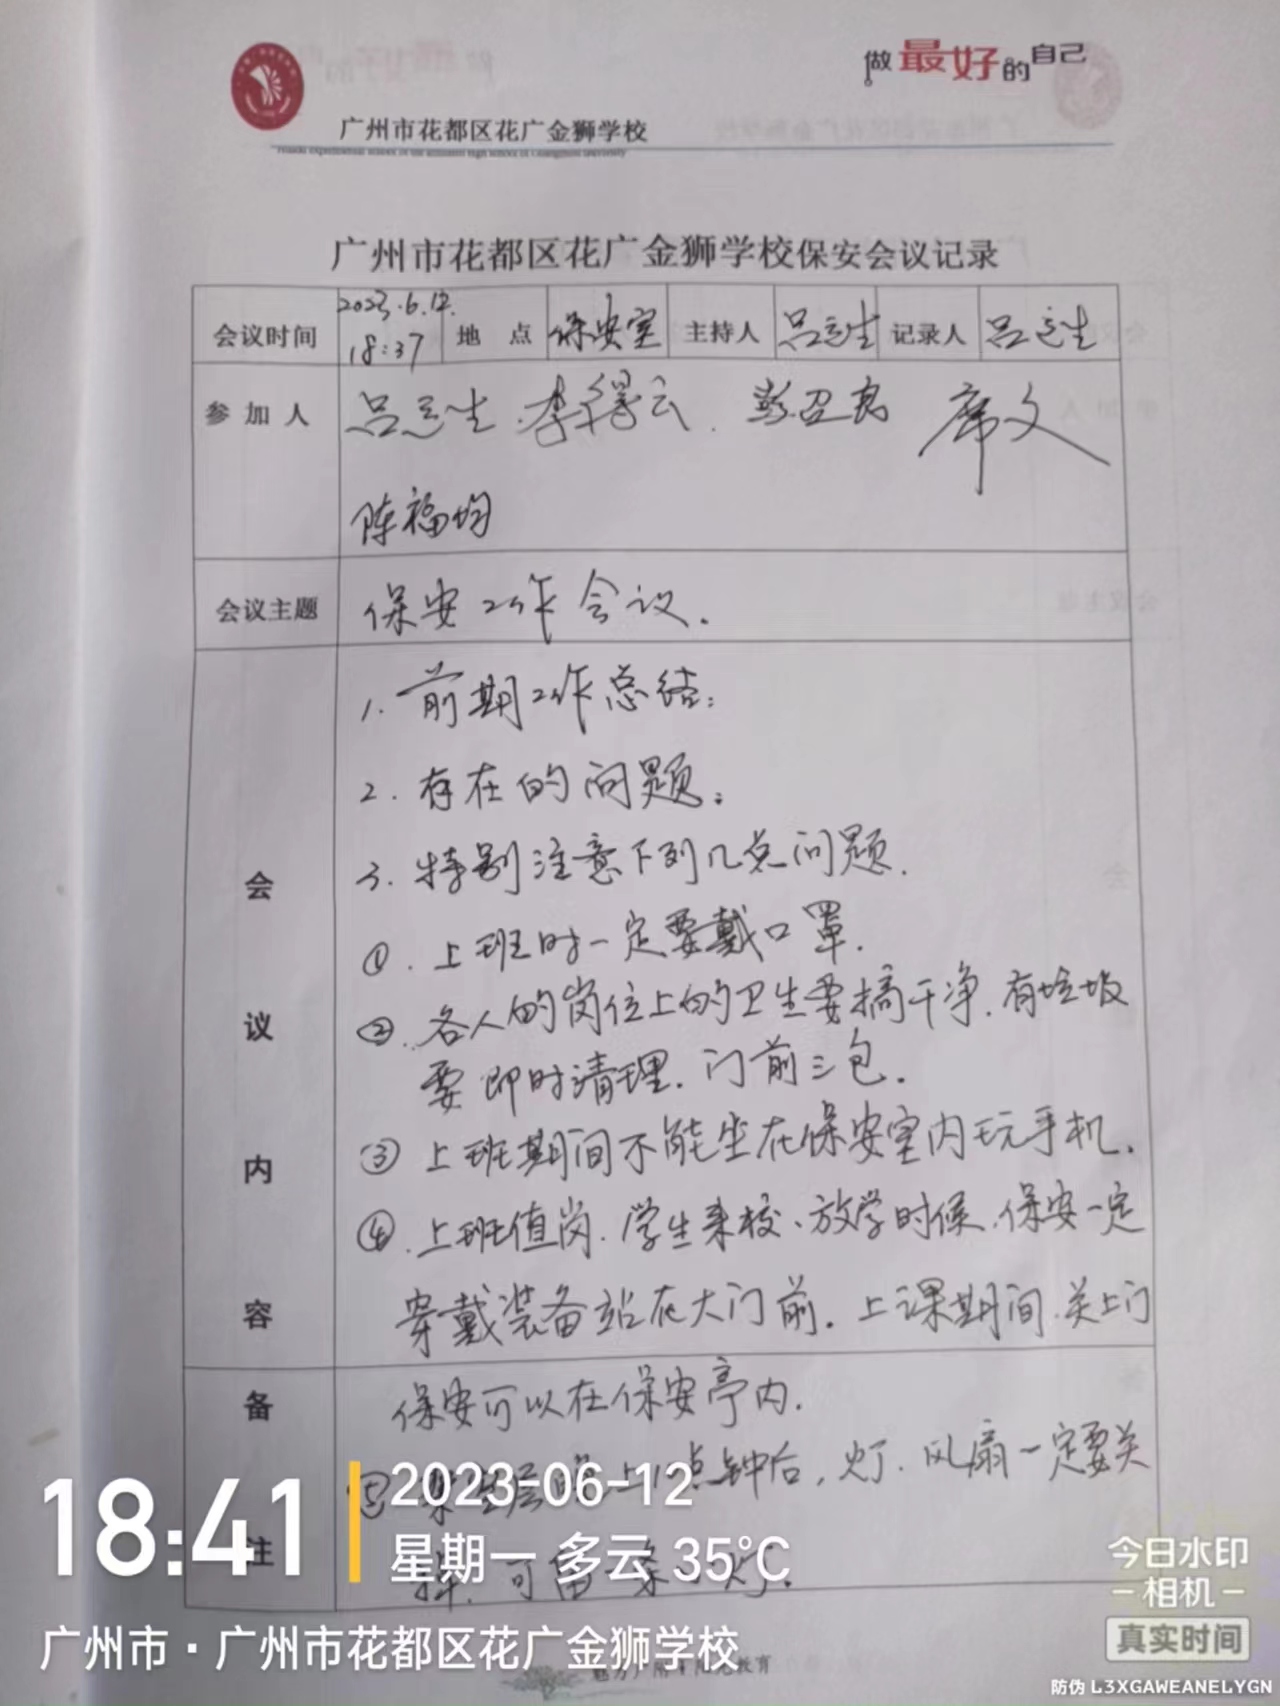 做最好的自己
广州市花都区花广金狮学校
广州市花都区花广金狮学校保安会议记录
会议时间 2023.6.12. 18:37 地点 保安室 主持人 吕 生 记录人 吕 生
参加人 吕 生. 李得云. 彭召良 席文
陈福均
会议主题 保安工作会议.
会议内容
1. 前期工作总结;
2. 存在的问题;
3. 特别注意下列几点问题.
①. 上班时一定要戴口罩.
②. 各人的岗位上的卫生要搞干净. 有垃圾
要即时清理. 门前三包.
③ 上班期间不能坐在保安室内玩手机.
④. 上班值岗. 学生来校、放学时候, 保安一定
穿戴装备站在大门前. 上课期间. 关上门
备注
保安可以在保安亭内.
⑤ 上 点钟后, 灯. 风扇一定要关
掉. 可留一 灯.
18:41
2023-06-12
星期一 多云 35℃
广州市·广州市花都区花广金狮学校
今日水印
相机
真实时间
防伪 L3XGAWEANELYGN